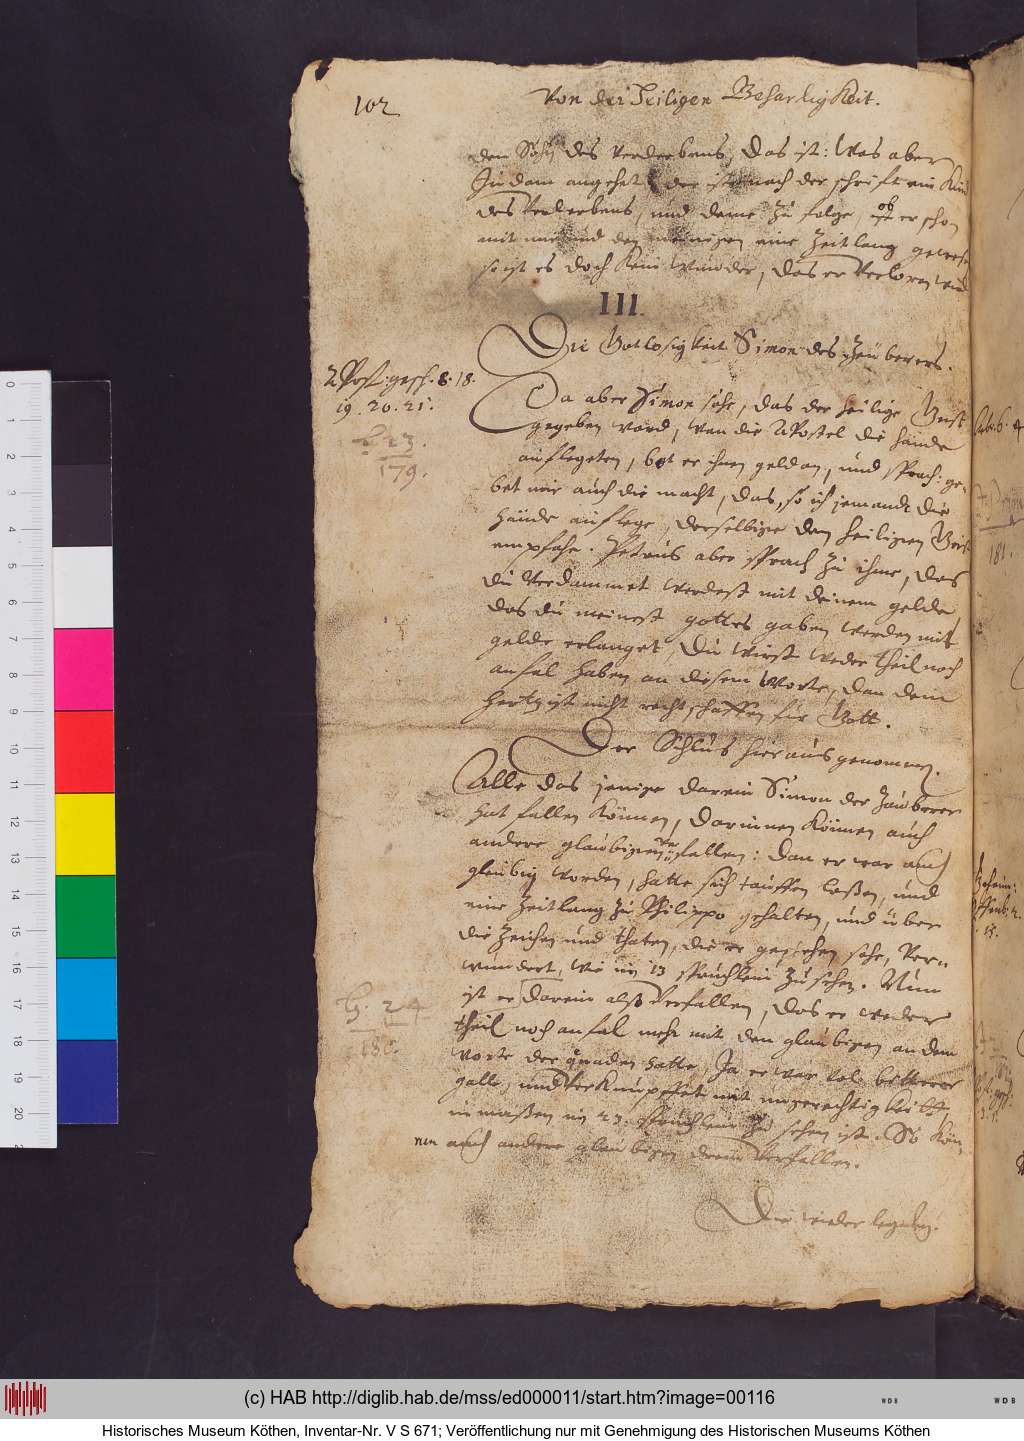 102
Von der Heiligen Beharligkeit.
dem Sohn des verderbens, Das ist: Was aber
Judam angehet, der ist nach der schrift ein Kind
des verderbens, und deme zu folge, ob er schon
mit mir und den meinigen eine Zeitlang gewesen
so ist es doch kein wunder, das er verloren wird
III.
Die Gotlosigkeit Simon des Zäuberers.
Apost: gesch. 8. 18.
19. 20. 21.
Da aber Simon sahe, das der heilige Geist
gegeben ward, wan die Apostel die hände
aufflegeten, bot er ihnen geld an, und sprach: ge-
bet mir auch die macht, das, so ich jemande die
hände auflege, derselbige den heiligen Geist
empfahe. Petrus aber sprach zu ihme, das
du verdammet werdest mit deinem gelde
das du meinest gottes gaben werden mitt
gelde erlanget, Du wirst weder theil noch
anfal haben an diesem Worte, dan dein
hertz ist nicht rechtschaffen für Gott.
13.
179.
Der Schlus hieraus genommen.
Alle das jenige darein Simon der Zäuberer
hat fallen können, darinnen können auch
andere glaubigen fallen: Dan er war auch
gleubig worden, hatte sich tauffen laßen, und
eine Zeitlang zu Philippo gehalten, und über
die Zeichen und thaten, die er geschehen sahe, ver-
wundert, wie im 13 sprüchlein zu sehen. Nun
ist er darein alß verfallen, das er weder
theil noch anfal mehr mit den glaubigen an dem
worte der gnaden hatte, Ja er war vol bitterer
galle, und verknupffet mit ungerechtigkeitt,
inmaßen im 23. sprüchlein zu sehen ist. So kön-
nen auch andere glaubigen drein verfallen.
24
180.
Die wiederlegung.
181.
(c) HAB http://diglib.hab.de/mss/ed000011/start.htm?image=00116
Historisches Museum Köthen, Inventar-Nr. V S 671; Veröffentlichung nur mit Genehmigung des Historischen Museums Köthen